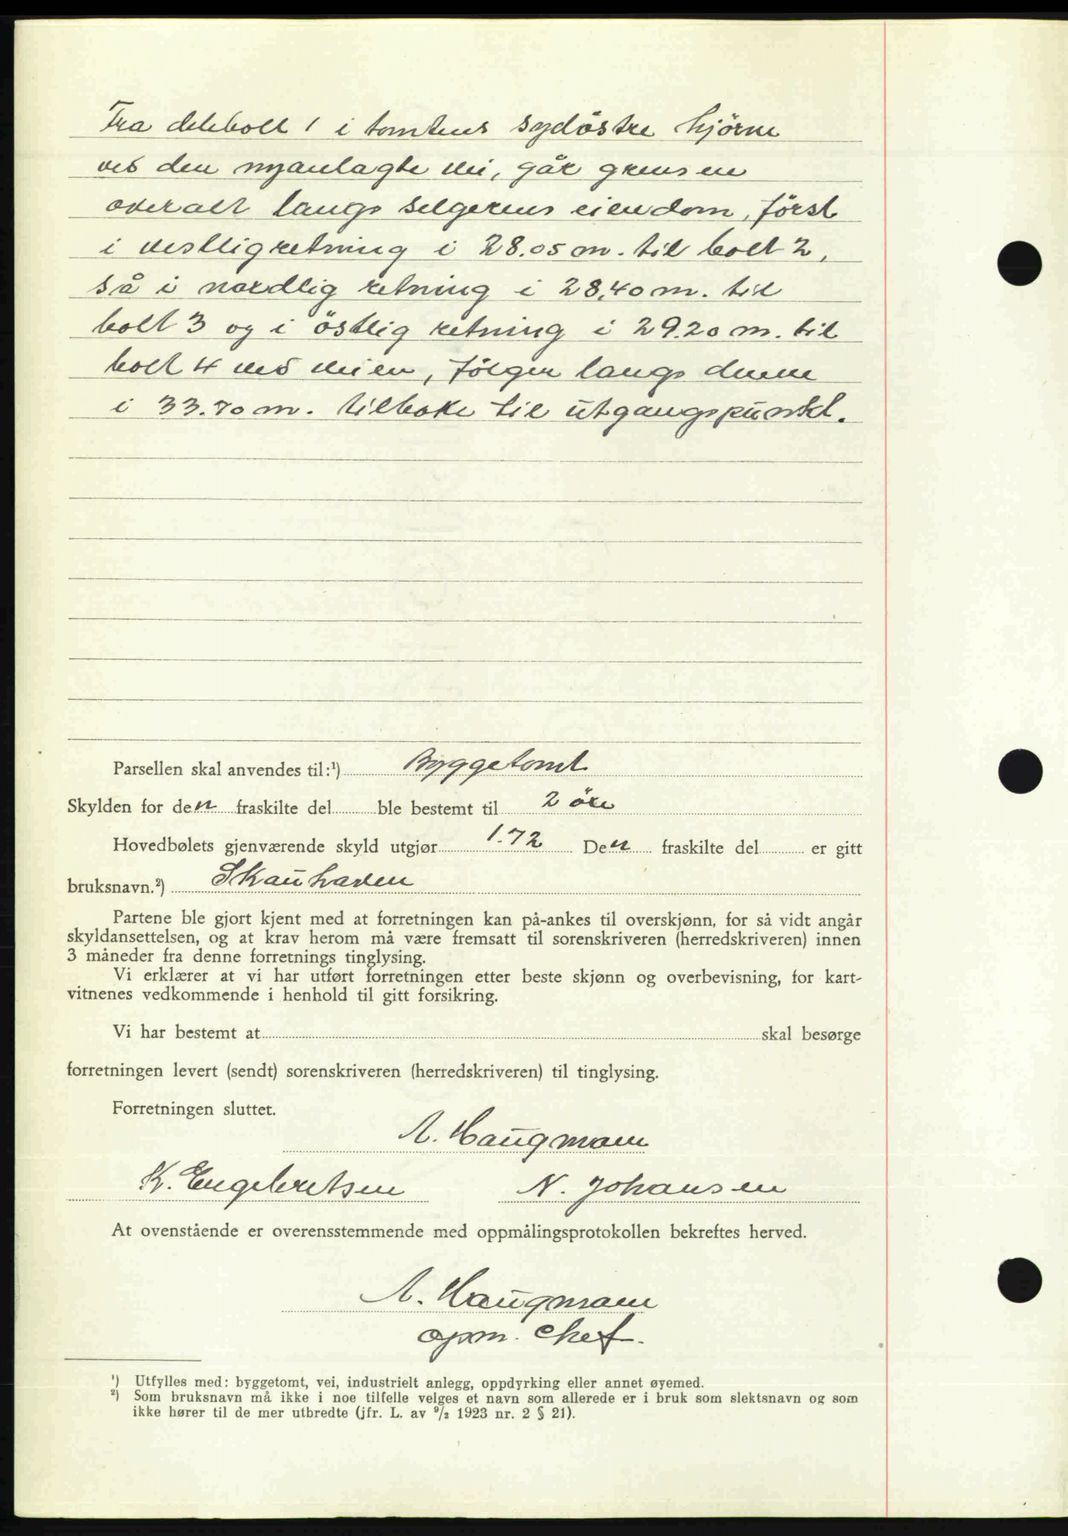 Fra delebolt 1 i tomtens sydöstre hjörne
ved den nyanlagte vei, går grensen
overalt langs selgerens eiendom, först
i vestligretning i 28.05 m. til bolt 2,
så i nordlig retning i 28,40 m. til
bolt 3 og i östlig retning i 29.20 m. til
bolt 4 ved veien, fölger langs denne
i 33.70 m. tilbake til utgangspunkt.
Parsellen skal anvendes til:¹) Byggetomt
Skylden for den fraskilte del ble bestemt til 2 öre
Hovedbølets gjenværende skyld utgjør 1.72 Den fraskilte del er gitt
bruksnavn.²) Skauhaven
Partene ble gjort kjent med at forretningen kan på-ankes til overskjønn, for så vidt angår
skyldansettelsen, og at krav herom må være fremsatt til sorenskriveren (herredskriveren) innen
3 måneder fra denne forretnings tinglysing.
Vi erklærer at vi har utført forretningen etter beste skjønn og overbevisning, for kart-
vitnenes vedkommende i henhold til gitt forsikring.
Vi har bestemt at skal besørge
forretningen levert (sendt) sorenskriveren (herredskriveren) til tinglysing.
Forretningen sluttet.
A. Haugmann
K. Engebretsen N. Johansen
At ovenstående er overensstemmende med oppmålingsprotokollen bekreftes herved.
A. Haugmann
opm. chef.
¹) Utfylles med: byggetomt, vei, industrielt anlegg, oppdyrking eller annet øyemed.
²) Som bruksnavn må ikke i noe tilfelle velges et navn som allerede er i bruk som slektsnavn og som
ikke hører til de mer utbredte (jfr. L. av ⁹/₂ 1923 nr. 2 § 21).